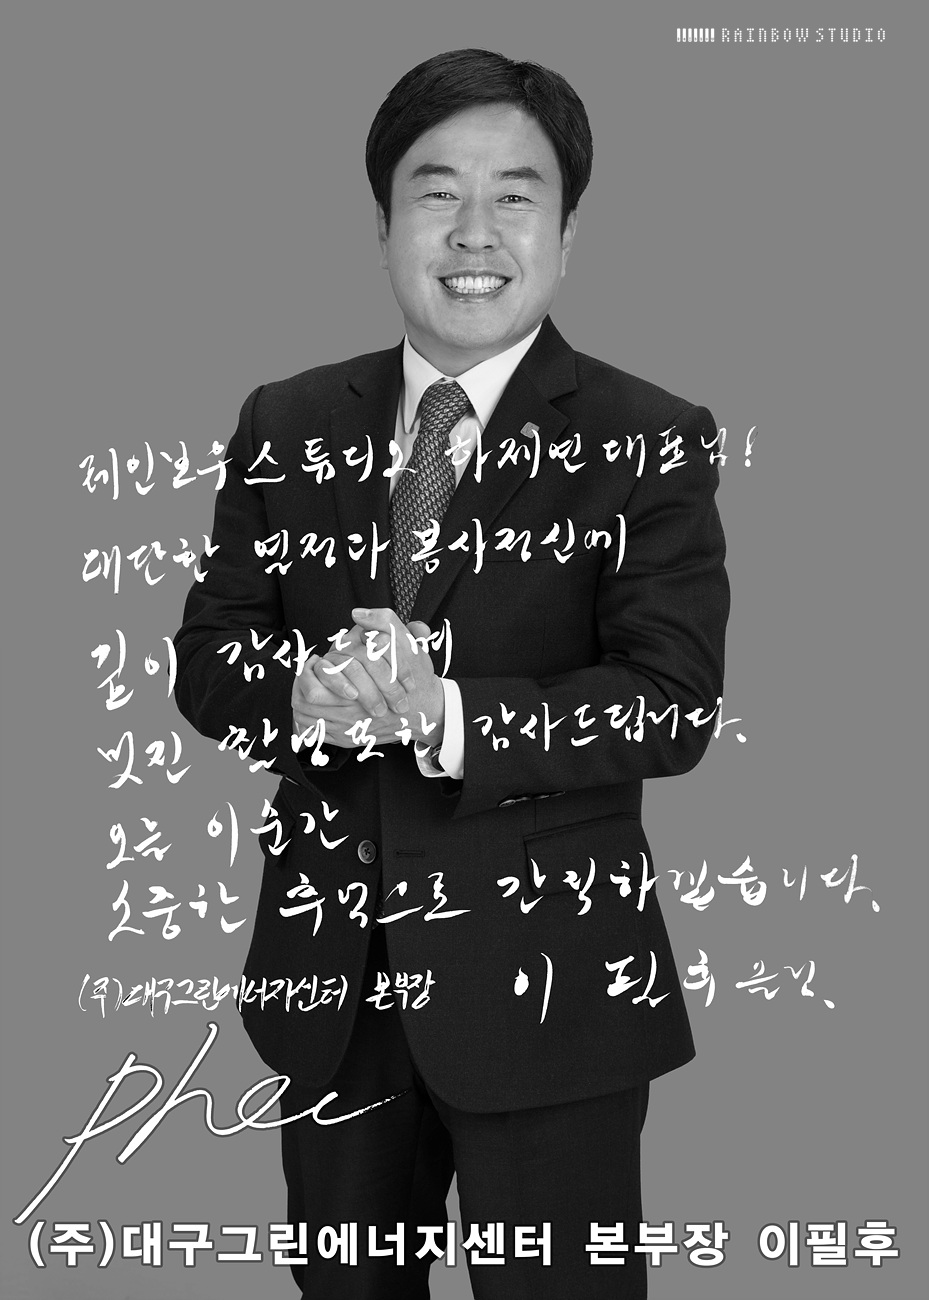 RAINBOW STUDIO
레인보우 스튜디오 하제연 대표님!
대단한 열정과 봉사정신에
깊이 감사드리며
멋진 촬영 또한 감사드립니다.
오늘 이 순간
소중한 추억으로 간직하겠습니다.
(주)대구그린에너지센터 본부장 이 필 후 드림.
phee
(주)대구그린에너지센터 본부장 이필후